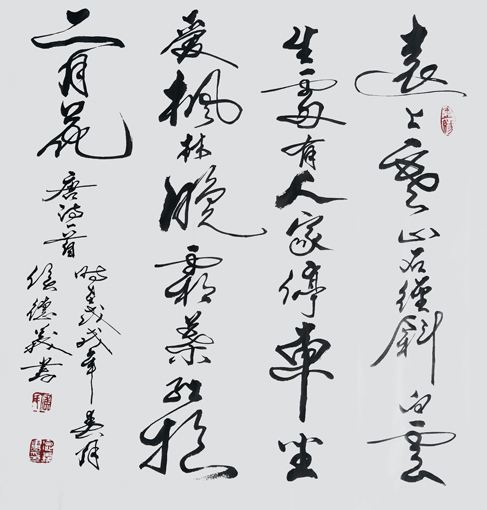 遠上寒山石徑斜白雲
生處有人家停車坐
愛楓林晚霜葉紅於
二月花
唐詩一首
时在戊戌年月
德義書